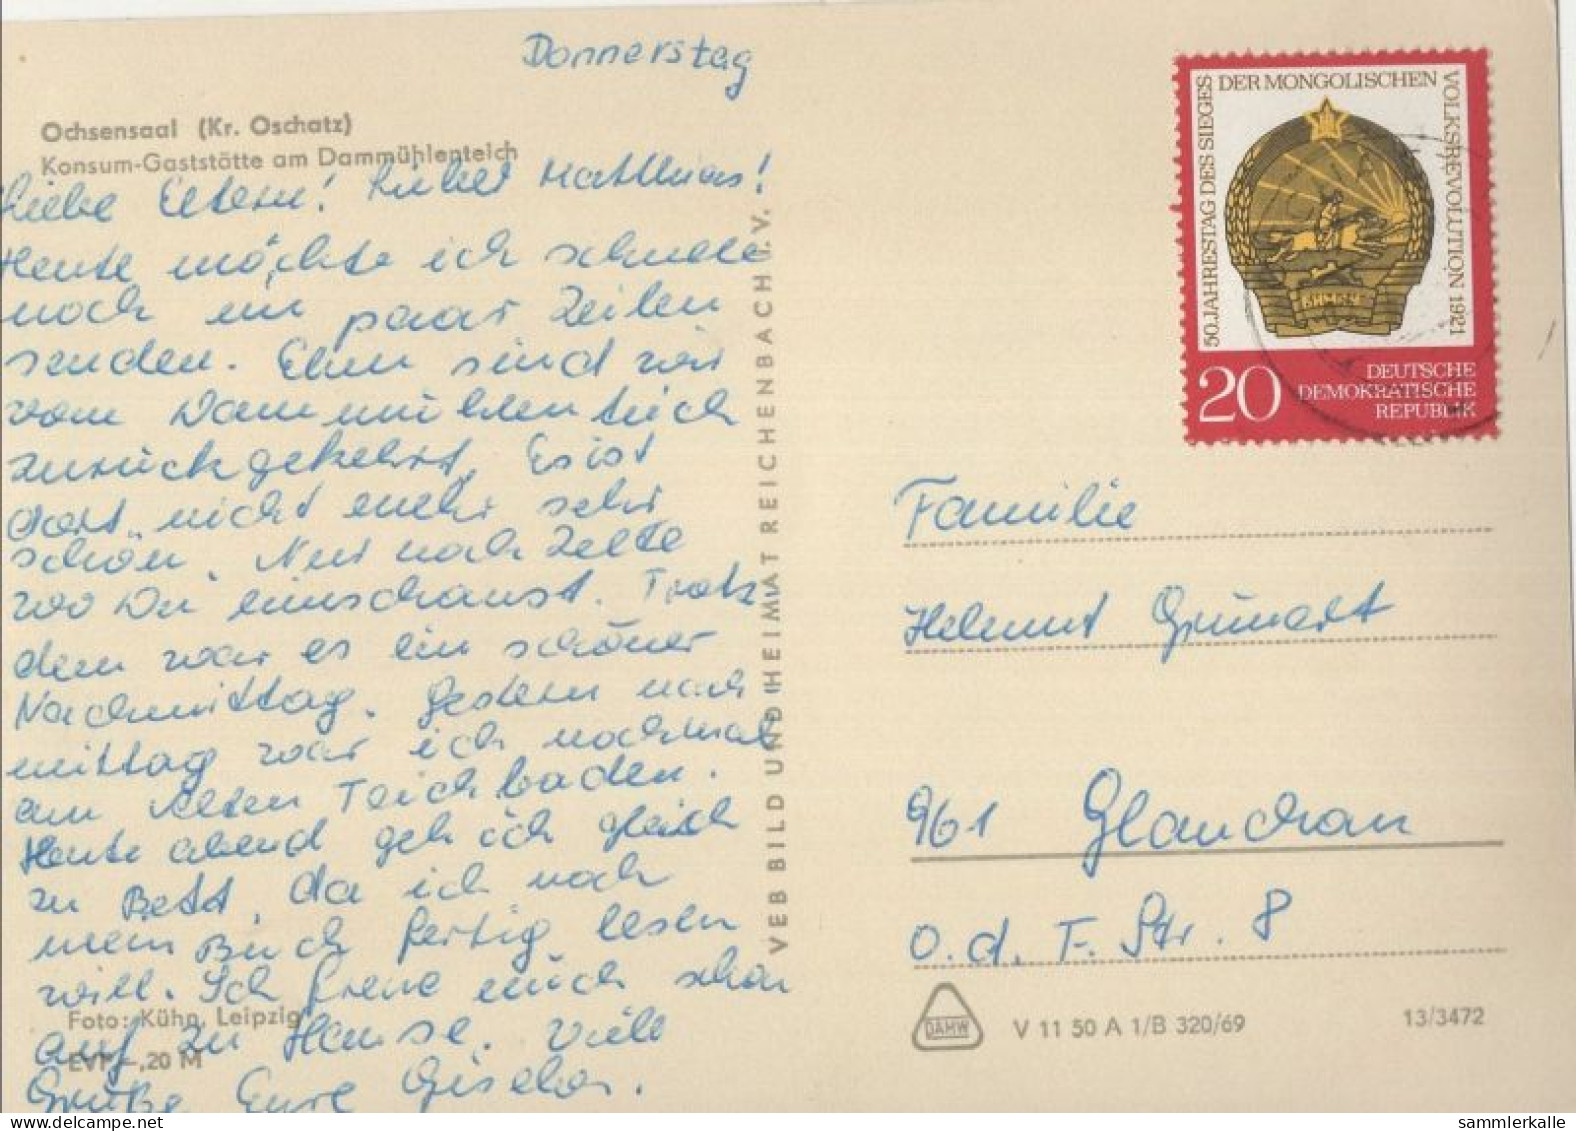 Donnerstag
Ochsensaal (Kr. Oschatz)
Konsum-Gaststätte am Dammühlenteich
Liebe Eltern! Lieber Matthias!
Heute möchte ich schnell
noch ein paar Zeilen
senden. Eben sind wir
vom Dammmühlenteich
zurückgekehrt. Es ist
dort nicht mehr sehr
schön. Nur noch Zelte
wo Du hinschaust. Trotz
dem war es ein schöner
Nachmittag. Gestern nach
mittag war ich nochmal
am alten Teich baden.
Heute abend geh ich gleich
zu Bett, da ich noch
mein Buch fertig lesen
will. Ich freue mich schon
auf zu Hause. Viele
Grüße Eure Gisela.
Foto: Kühn, Leipzig
EVP –,20 M
VEB BILD UND HEIMAT REICHENBACH I. V.
50. JAHRESTAG DES SIEGES
DER MONGOLISCHEN
VOLKSREVOLUTION 1921
БНМАУ
20
DEUTSCHE
DEMOKRATISCHE
REPUBLIK
Familie
Helmut Grünert
961 Glauchau
O.d.F. Str. 8
DAHW
V 11 50 A 1/B 320/69
13/3472
www.delcampe.net
sammlerkalle